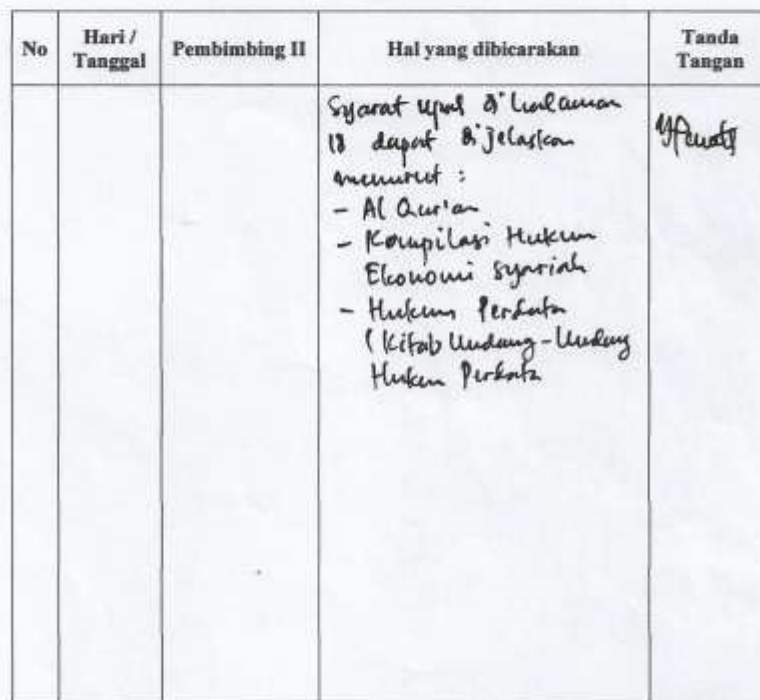 No
Hari /
Tanggal
Pembimbing II
Hal yang dibicarakan
Tanda
Tangan
Syarat di halaman
18 dapat dijelaskan
menurut :
- Al Qur'an
- Kompilasi Hukum
Ekonomi Syariah
- Hukum Perdata
(Kitab Undang-Undang
Hukum Perdata